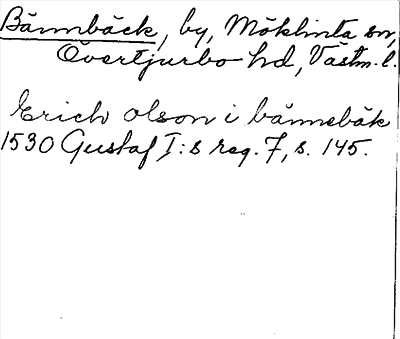 Bännbäck, by, Möklinta sn,
Övertjurbo hd, Västm. l.
Erich olson i bännebäk
1530 Gustaf I:s reg. 7, s. 145.